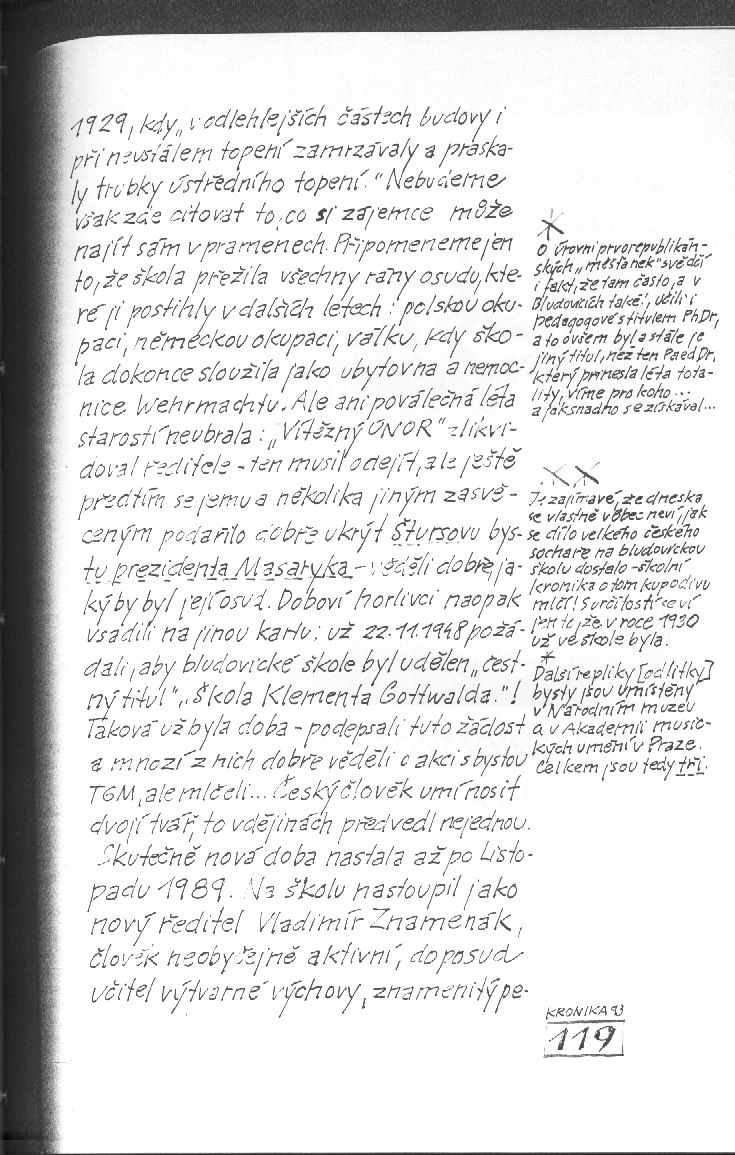 1929, kdy „v odlehlejších částech budovy i
při neustálem topení zamrzávaly a praska-
ly trubky ústředního topení." Nebudeme
však zde citovat to, co si zájemce může
najít sám v pramenech. Připomeneme jen
to, že škola přežila všechny rány osudu, kte-
ré ji postihly v dalších letech: polskou oku-
paci, německou okupaci, válku, kdy ško-
la dokonce sloužila jako ubytovna a nemoc-
nice Wehrmachtu. Ale ani poválečná léta
starostí neubrala: „Vítězný ÚNOR" zlikvi-
doval ředitele - ten musil odejít, ale ještě
předtím se jemu a několika jiným zasvě-
ceným podařilo dobře ukrýt Štursovu bys-
tu prezidenta Masaryka - věděli dobře, ja-
ký by byl její osud. Doboví horlivci naopak
vsadili na jinou kartu: už 22.11.1948 požá-
dali, aby bludovické škole byl udělen „čest-
ný titul" „Škola Klementa Gottwalda."!
Taková už byla doba - podepsali tuto žádost
a mnozí z nich dobře věděli o akci s bystou
TGM, ale mlčeli... Český člověk umí nosit
dvojí tvář, to v dějinách předvedl nejednou.
Skutečně nová doba nastala až po Listo-
padu 1989. Na školu nastoupil jako
nový ředitel Vladimír Znamenák,
člověk neobyčejně aktivní, doposud
učitel výtvarné výchovy, znamenitý pe-
*
O úrovni prvorepublikán-
ských „měšťanek" svědčí
i fakt, že tam často, a v
Bludovicích také!, učili i
pedagogové s titulem PhDr,
a to ovšem byl a stále je
jiný titul, než ten PaedDr,
který přinesla léta tota-
lity, víme pro koho...
a jak snadno se získával...
**
Je zajímavé, že dneska
se vlastně vůbec neví, jak
se dílo velkého českého
sochaře na bludovickou
školu dostalo - školní
kronika o tom kupodivu
mlčí! S určitostí se ví
jen to, že v roce 1930
už ve škole byla.
*
Další repliky [odlitky]
bysty jsou umístěny
v Národním muzeu
a v Akademii music-
kých umění v Praze.
Celkem jsou tedy tři.
KRONIKA 93
119